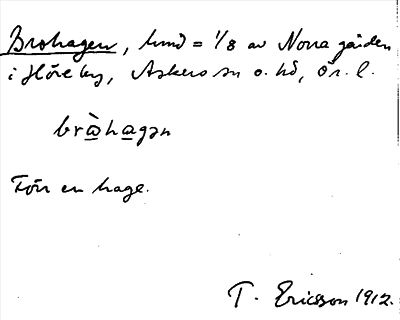 Brohagen, hmd = 1/8 av Norra gården
i Hörseby, Askers sn o. hd, Ör. l.
bràhagən
Förr en hage.
T. Ericsson 1912.